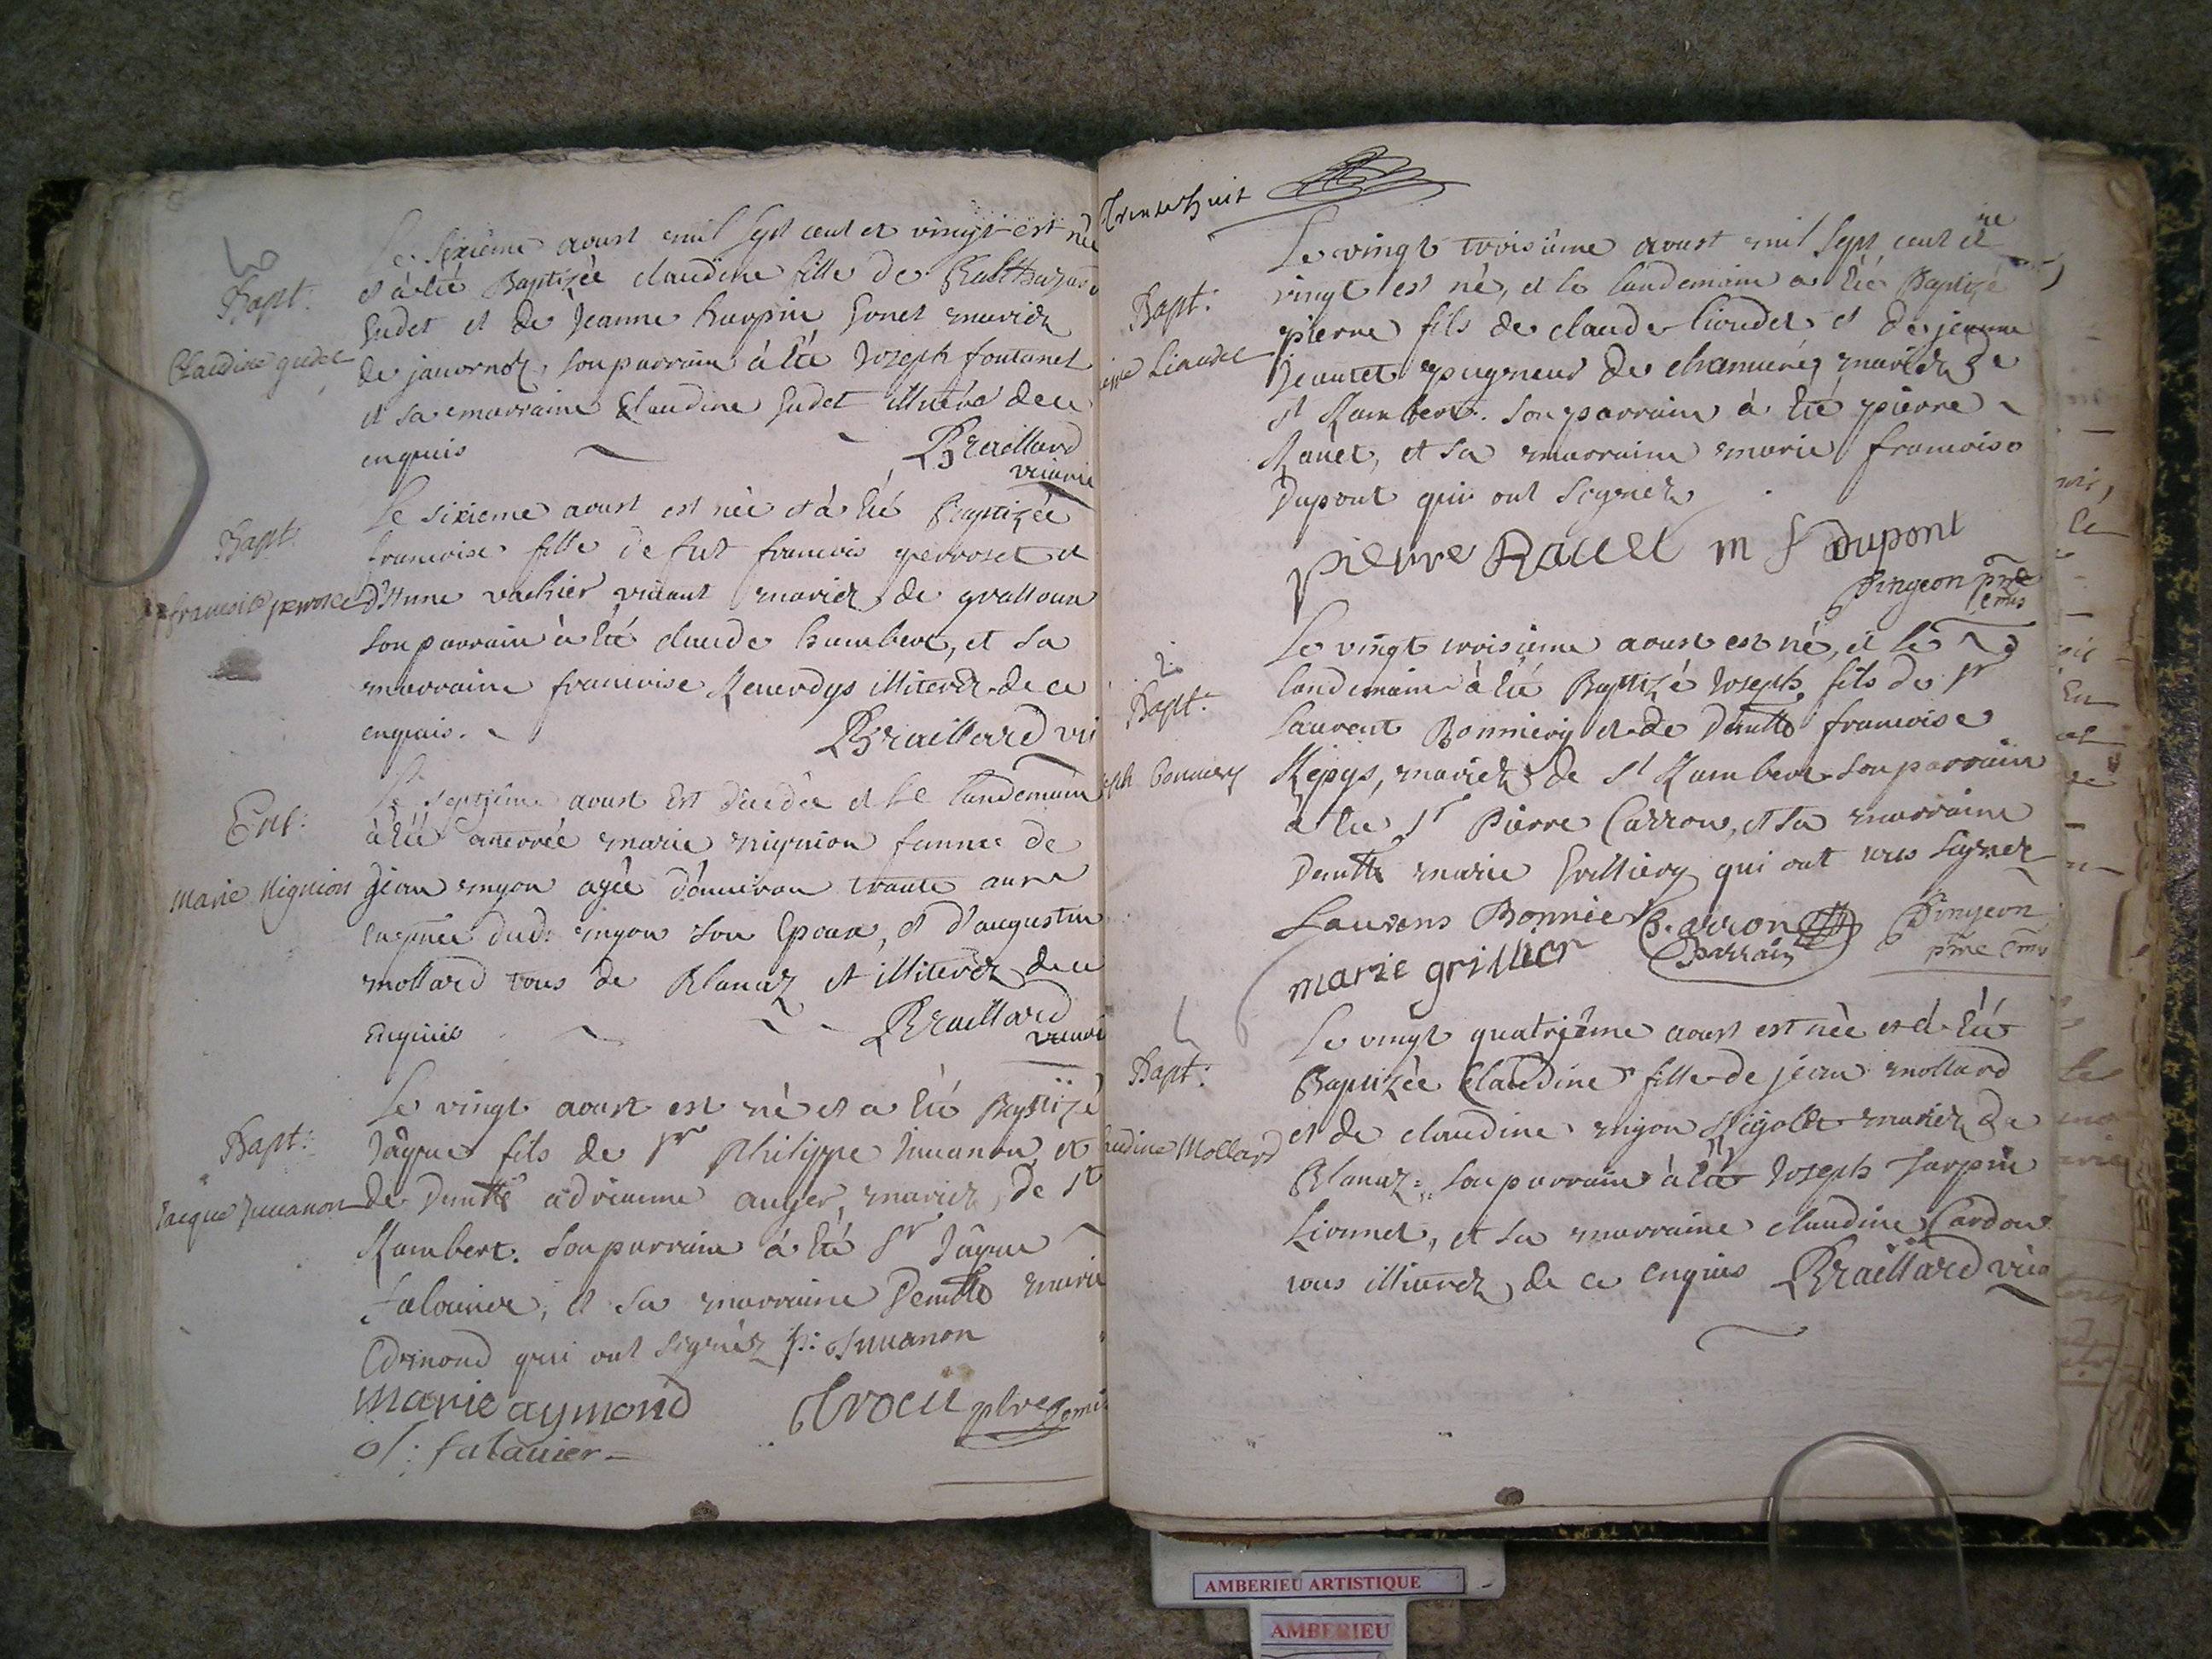 Bapt:
Claudine gudet
Le sixieme aoust mil sept cent et vingt est née
et a été Baptizée claudine fille de Balthazard
Gudet et de Jeanne harpin Gonet mariez
de jauornoz, son parrain à été Joseph fontanel
et sa marraine Claudine Gudet de ce
enquis Braillard
vicaire
Bapt:
francoise perroset
Le sixieme aoust est née et à été Baptizée
francoise fille de fut francois perroset et
d'Anne vachier vivant mariez de
son parrain à été claude humbert, et sa
marraine francoise illiterez de ce
enquis. Braillard vi
Ent:
Marie Mignion
Le septieme aoust est décédée et le landemain
à été enterrée marie mignion femme de
jean mgon agée d'environ trante ans
dud. mgon son Epoux, et d'augustin
mollard tous de Blanaz et illiterez de ce
enquis Braillard
vicai
Bapt:
Jacque Juuanon
Le vingt aoust est né et a été Baptizé
Jâque fils de sr Philippe Juuanon et
de Demlle adrianne auger, mariez, de st
Rambert. son parrain à été Sr Jâque
falavier, et sa marraine Demlle marie
Edmond qui ont signéz p: Juuanon
marie aymond Trocu ptre
J: falauier
Trente huit
Bapt:
Le vingt troisième aoust mil sept cent et
vingt est né, et le landemain a été Baptizé
pierre fils de claude lioudet et de jeanne
Jeantet pugneur de mariez de
st Rambert. son parrain à été pierre
Rauet, et sa marraine marie francoise
Dupont qui ont signez
pierre Rauet m f dupont
Pingeon ptre
2.
Bapt:
Bonniery
Le vingt troisième aoust est né, et le
landemain à été Baptizé Joseph fils de sr
Laurent Bonniery et de Demlle francoise
Repys, mariez de st Rambert son parrain
a été Sr Pierre Carron, et sa marraine
Demlle marie Grilliery qui ont tous signez
Laurens Bonnier P. Carron Pingeon
marie grillier Parrain
Bapt:
Claudine Mollard
Le vingt quatrième aoust est née et à été
Baptizée Claudine fille de jean mollard
et de claudine migon mariez de
Blanaz: son parrain à été Joseph Jarpin
Lionnet, et sa marraine claudine Cardon
tous illiterez de ce enquis Braillard vica
AMBERIEU ARTISTIQUE
AMBERIEU